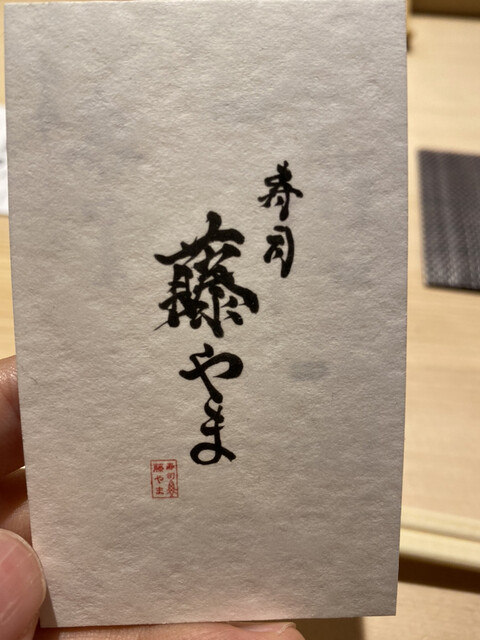 寿司
藤やま
藤やま